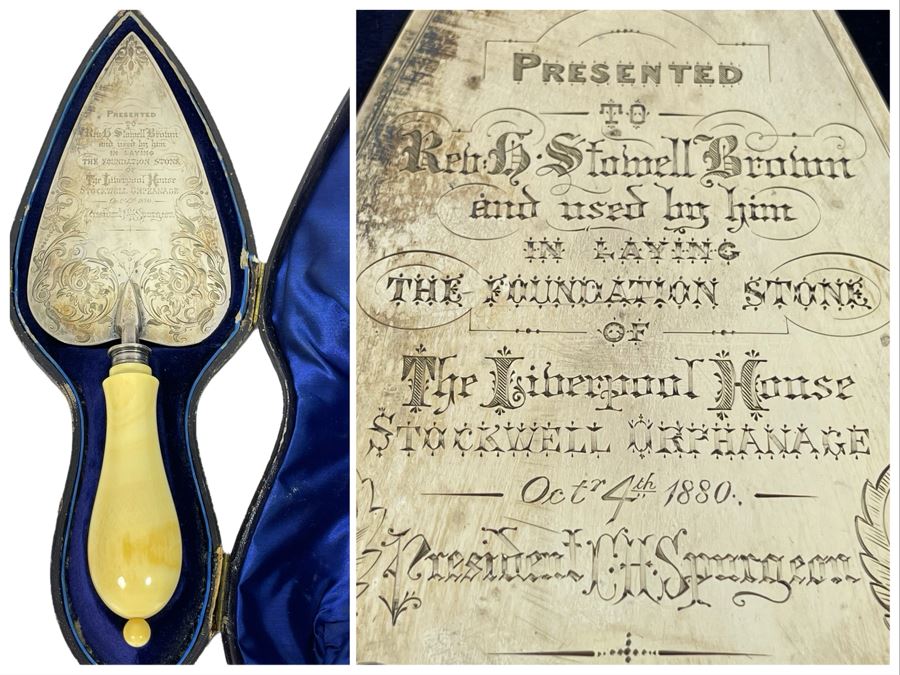 PRESENTED
TO
Rev. H. Stowell Brown
and used by him
IN LAYING
THE FOUNDATION STONE
OF
The Liverpool House
STOCKWELL ORPHANAGE
Octr 4th 1880.
President C.H. Spurgeon
PRESENTED
TO
Rev. H. Stowell Brown
and used by him
IN LAYING
THE FOUNDATION STONE
OF
The Liverpool House
STOCKWELL ORPHANAGE
Octr 4th 1880.
President C.H. Spurgeon